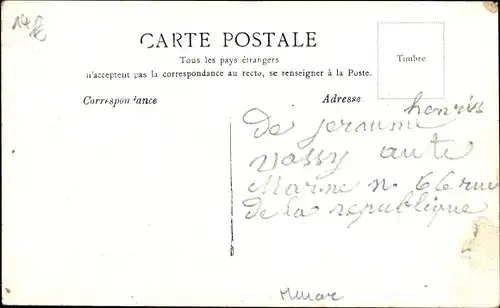 CARTE POSTALE
Tous les pays étrangers
n'acceptent pas la correspondance au recto, se renseigner à la Poste.
Timbre
Correspondance
Adresse
henris
de jeraume
vassy aute
Marne n. 66 rue
de la republique